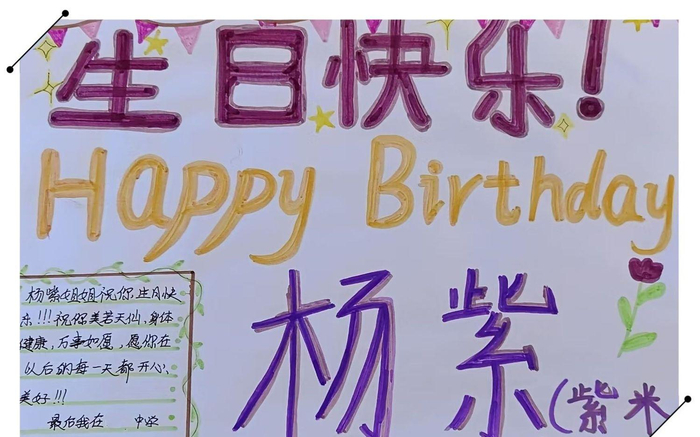 生日快乐!
Happy Birthday
杨紫姐姐祝你生日快
乐!!!祝你美若天仙,身体
健康,万事如愿,愿你在
以后的每一天都开心,
美好!!!
最后我在 中学
杨紫
(紫米